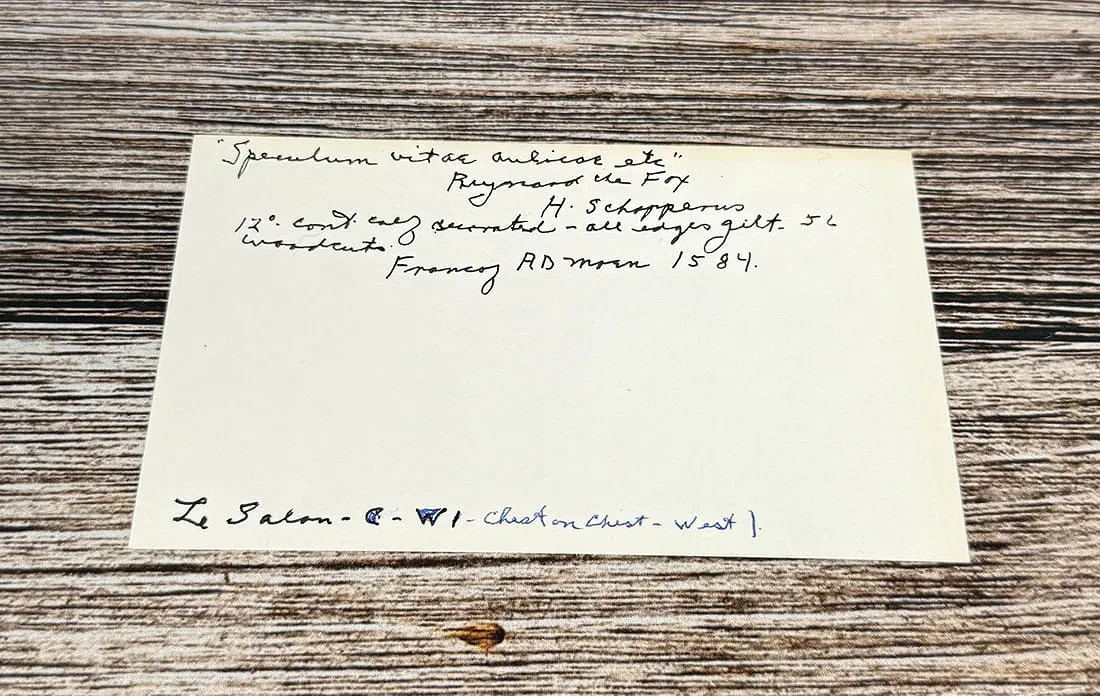 "Speculum vitae aulicae etc"
Reynard the Fox
H. Schopperus
12° cont. calf decorated - all edges gilt.
woodcuts.
Francof AD Moen 1584.
Le Salon - C - W1 - Chest on Chest - West 1.